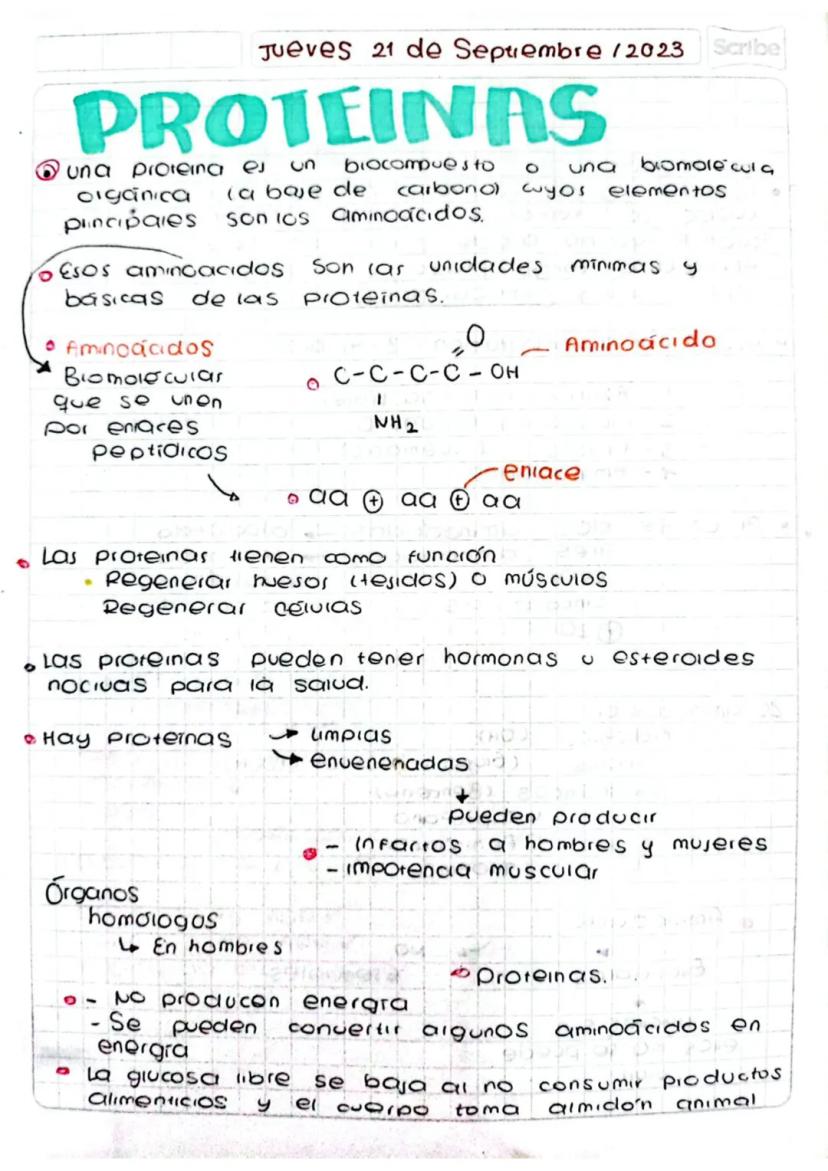 Jueves 21 de Septiembre / 2023
Scribe
PROTEINAS
una proteina es un biocompuesto o una biomolécula
orgánica (a base de carbono) cuyos elementos
principales son los aminoácidos.
Esos aminoacidos son las unidades mínimas y
básicas de las proteínas.
Aminoácidos
Biomoléculas
que se unen
por enlaces
peptídicos
O
Aminoácido
C-C-C-C-OH
NH2
enlace
aa + aa + aa
Las proteinas tienen como función
Regenerar huesos (tesidos) o músculos
Regenerar células
Las proteinas pueden tener hormonas u esteroides
nocivas para la salud.
Hay proteinas → limpias
→ envenenadas
↓
pueden producir
- Infartos a hombres y mujeres
- impotencia muscular
Órganos
homólogos
↳ En hombres
Proteinas.
- No producen energía
- Se pueden convertir algunos aminoácidos en
energía
La glucosa libre se baja al no consumir productos
alimenticios y el cuerpo toma almidón animal